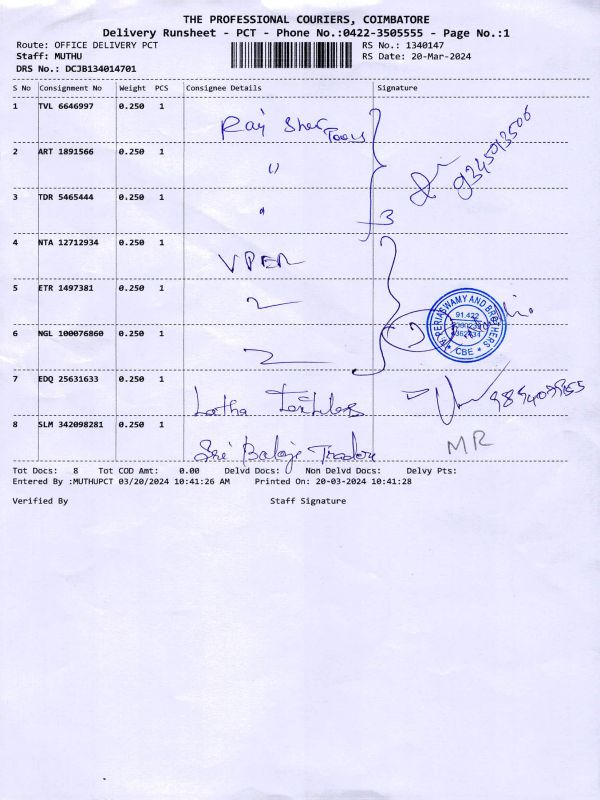 THE PROFESSIONAL COURIERS, COIMBATORE
Delivery Runsheet - PCT - Phone No.:0422-3505555 - Page No.:1
Route: OFFICE DELIVERY PCT RS No.: 1340147
Staff: MUTHU RS Date: 20-Mar-2024
DRS No.: DCJB134014701
S No Consignment No Weight PCS Consignee Details Signature
1 TVL 6646997 0.250 1 Raj
2 ART 1891566 0.250 1
3 TDR 5465444 0.250 1 3
4 NTA 12712934 0.250 1
5 ETR 1497381 0.250 1
6 NGL 100076860 0.250 1
PERIASWAMY AND BROTHERS
CBE
7 EDQ 25631633 0.250 1 Latha
8 SLM 342098281 0.250 1 Sri Balaji MR
Tot Docs: 8 Tot COD Amt: 0.00 Delvd Docs: Non Delvd Docs: Delvy Pts:
Entered By :MUTHUPCT 03/20/2024 10:41:26 AM Printed On: 20-03-2024 10:41:28
Verified By Staff Signature